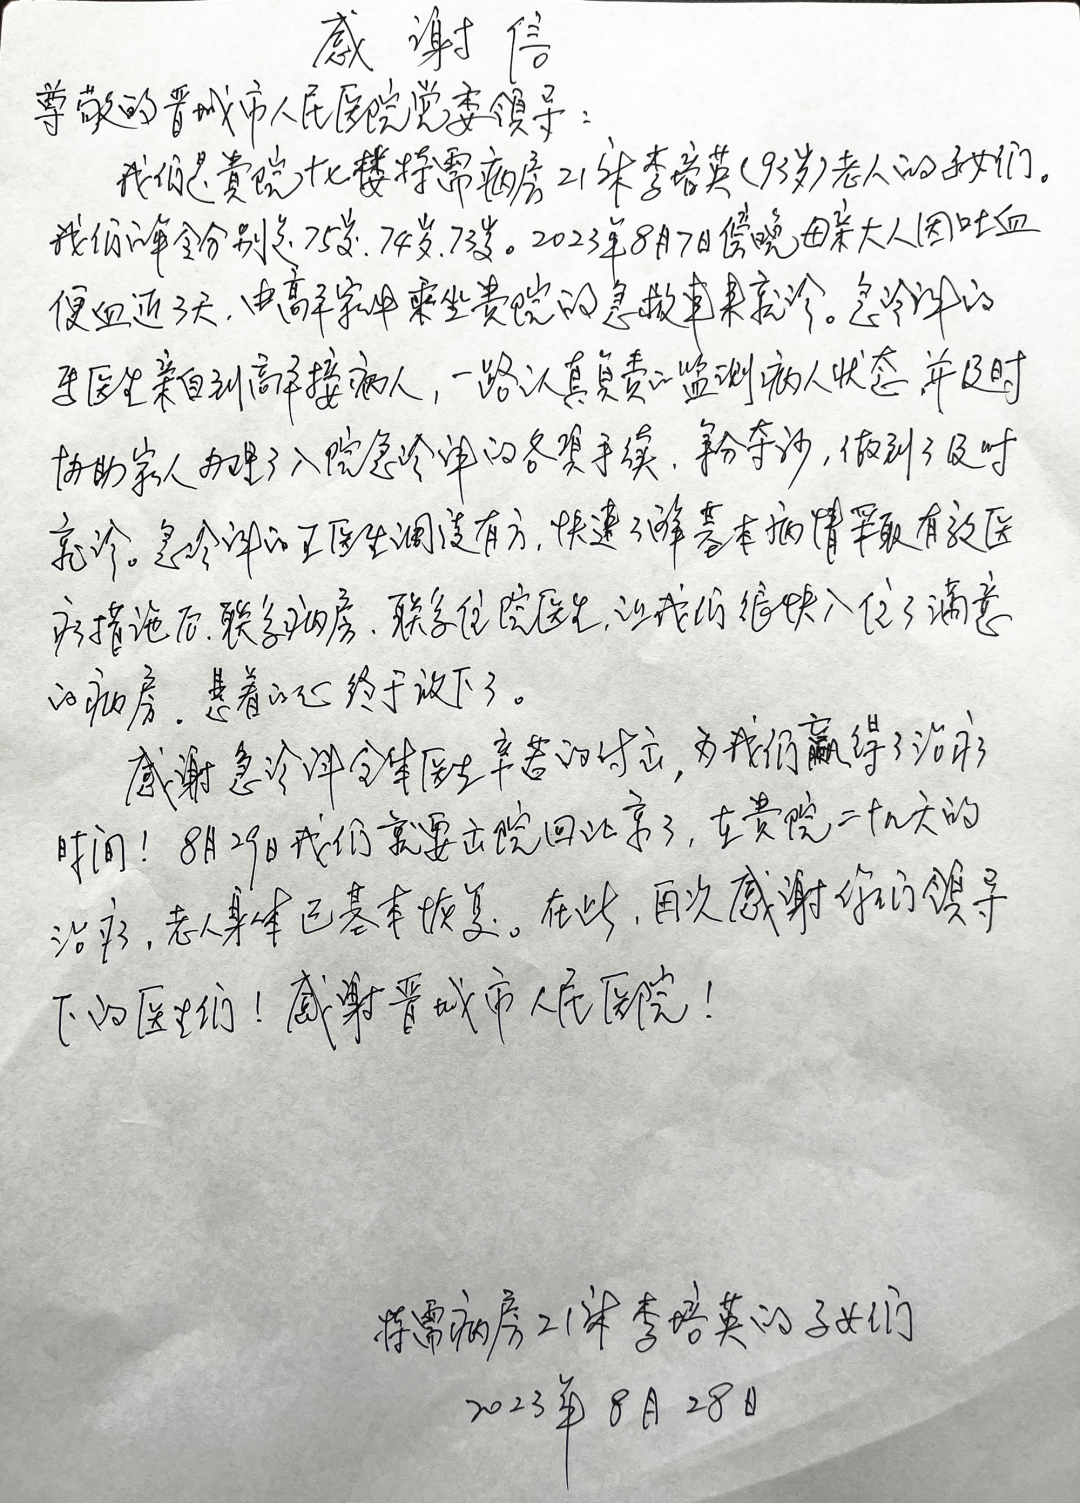 感谢信
尊敬的晋城市人民医院党委领导：
我们是贵院十七楼特需病房21床李培英（93岁）老人的子女们。
我们的年令分别是75岁、74岁、73岁。2023年8月7日傍晚母亲大人因吐血
便血近3天，由高平家中乘坐贵院的急救车来就诊。急诊科的
医生亲自到高平接病人，一路认真负责的监测病人状态，并及时
协助家人办理了入院急诊科的各项手续，争分夺秒，做到了及时
就诊。急诊科的王医生调度有方，快速了解基本病情采取有效医
疗措施后、联系病房、联系住院医生，让我们很快入住了满意
的病房，悬着的心终于放下了。
感谢急诊科全体医生辛苦的付出，为我们赢得了治疗
时间！8月29日我们就要出院回北京了，在贵院二十九天的
治疗，老人身体已基本恢复。在此，再次感谢你们领导
下的医生们！感谢晋城市人民医院！
特需病房21床李培英的子女们
2023年8月28日